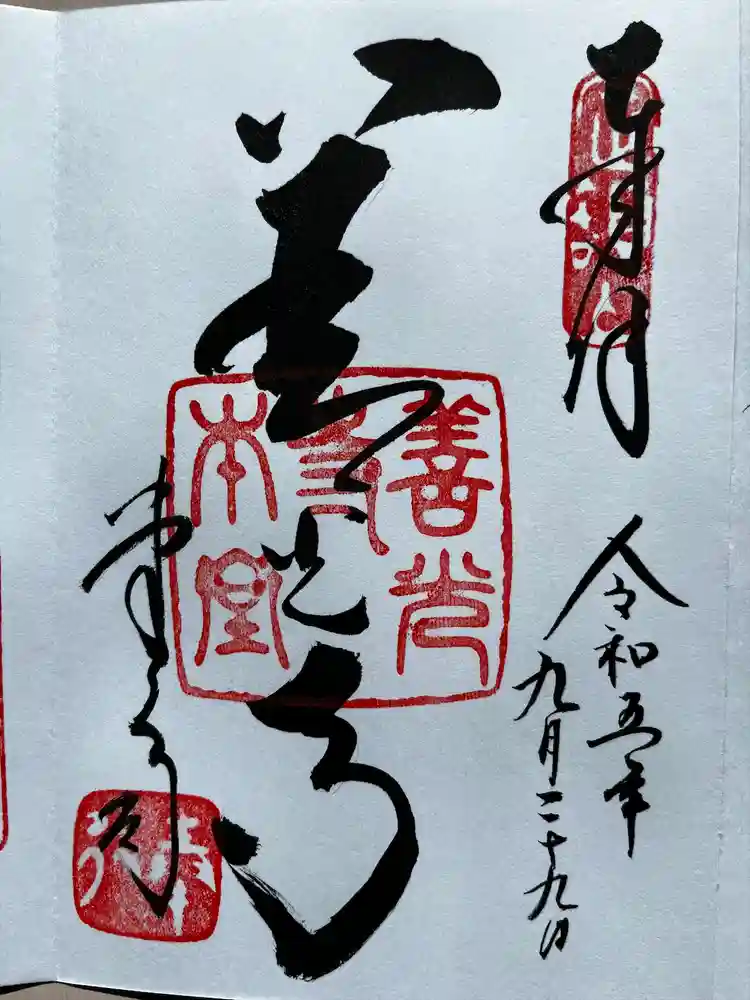 奉拝
令和五年
九月二十九日
善光寺
善光
寺
本堂